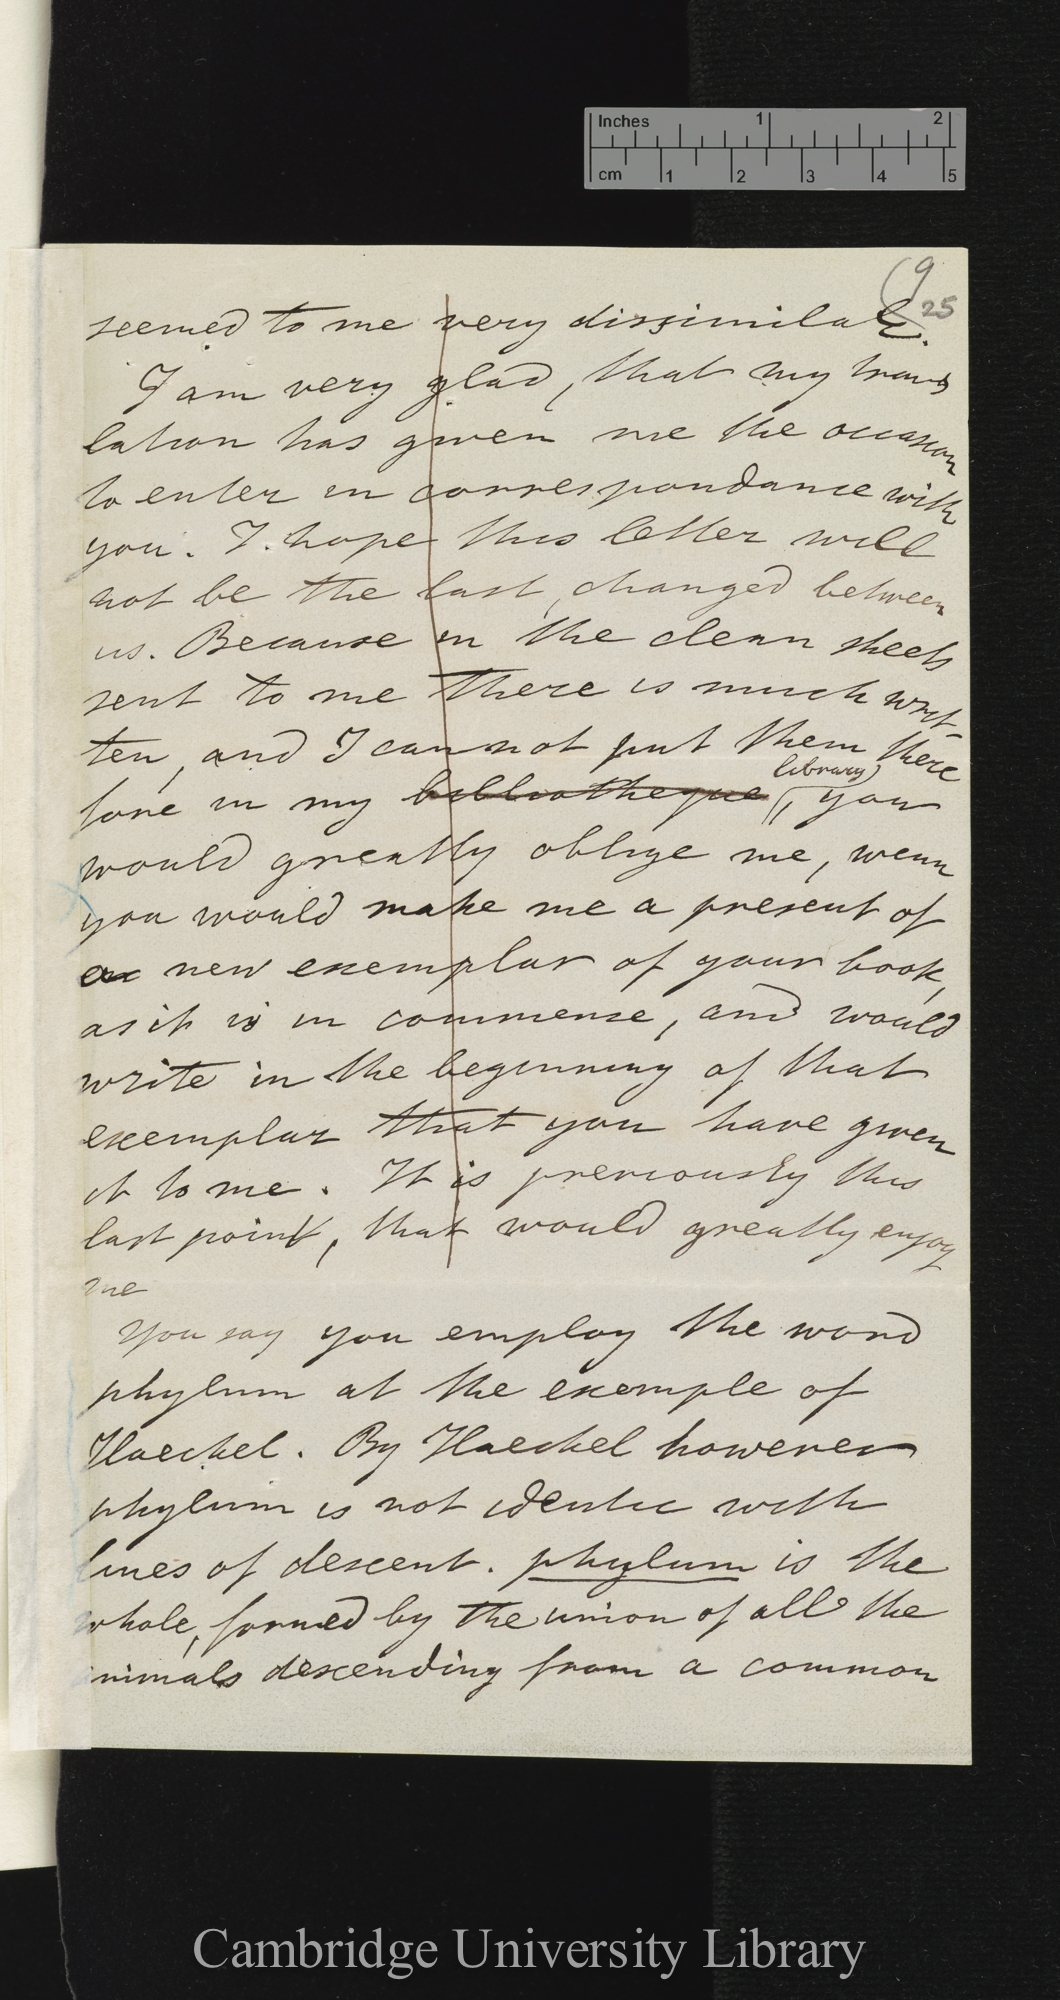 Inches 1 2
cm 1 2 3 4 5
9
25
seemed to me very dissimilar.
I am very glad, that my trans
lation has given me the occasion
to enter in correspondance with
you. I hope this letter will
not be the last, changed between
us. Because in the clean sheets
sent to me there is much writ-
ten, and I can not put them there
library)
fore in my bibliotheque, you
would greatly oblige me, wenn
you would make me a present of
a new exemplar of your book,
as it is in commerse, and would
write in the beginning of that
exemplar that you have given
it to me. It is previously this
last point, that would greatly enjoy
me
You say you employ the word
phylum at the exemple of
Haeckel. By Haeckel however
phylum is not identic with
lines of descent. phylum is the
whole, formed by the union of all the
animals descending from a common
Cambridge University Library